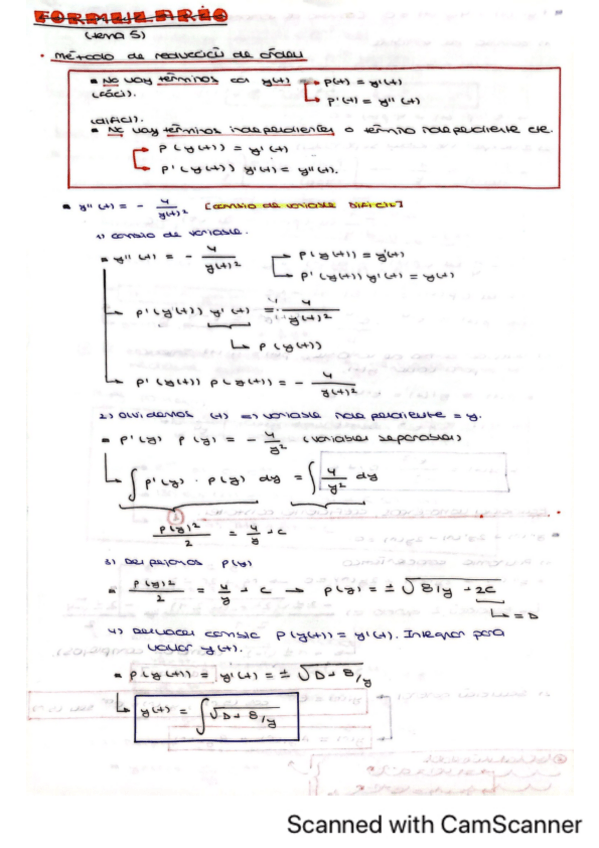 FORMULARIO
(tema 5)
• Método de reducción de orden
▪ No hay términos con y(t) → p(t) = y'(t)
(fácil). ↳ p'(t) = y''(t)
(difícil).
▪ No hay términos independientes o término independiente cte.
p(y(t)) = y'(t)
p'(y(t)) y'(t) = y''(t).
▪ y''(t) = - 4/y(t)² [cambio de variable difícil]
1) cambio de variable.
▪ y''(t) = - 4/y(t)² → p(y(t)) = y'(t)
→ p'(y(t)) y'(t) = y(t)
→ p'(y(t)) y'(t) = - 4/y(t)²
↳ p(y(t))
→ p'(y(t)) p(y(t)) = - 4/y(t)²
2) Olvidamos (t) => variable independiente = y.
▪ p'(y) p(y) = - 4/y² (variables separables)
↳ ∫ p'(y) · p(y) dy = ∫ 4/y² dy
p(y)²/2 = 4/y + C
3) Despejamos p(y)
▪ p(y)²/2 = 4/y + C → p(y) = ± √8/y + 2C
↳ = D
4) Deshacer cambio p(y(t)) = y'(t). Integrar para
hallar y(t).
▪ p(y(t)) = y'(t) = ± √D + 8/y
↳ y(t) = ∫ √D + 8/y
Scanned with CamScanner